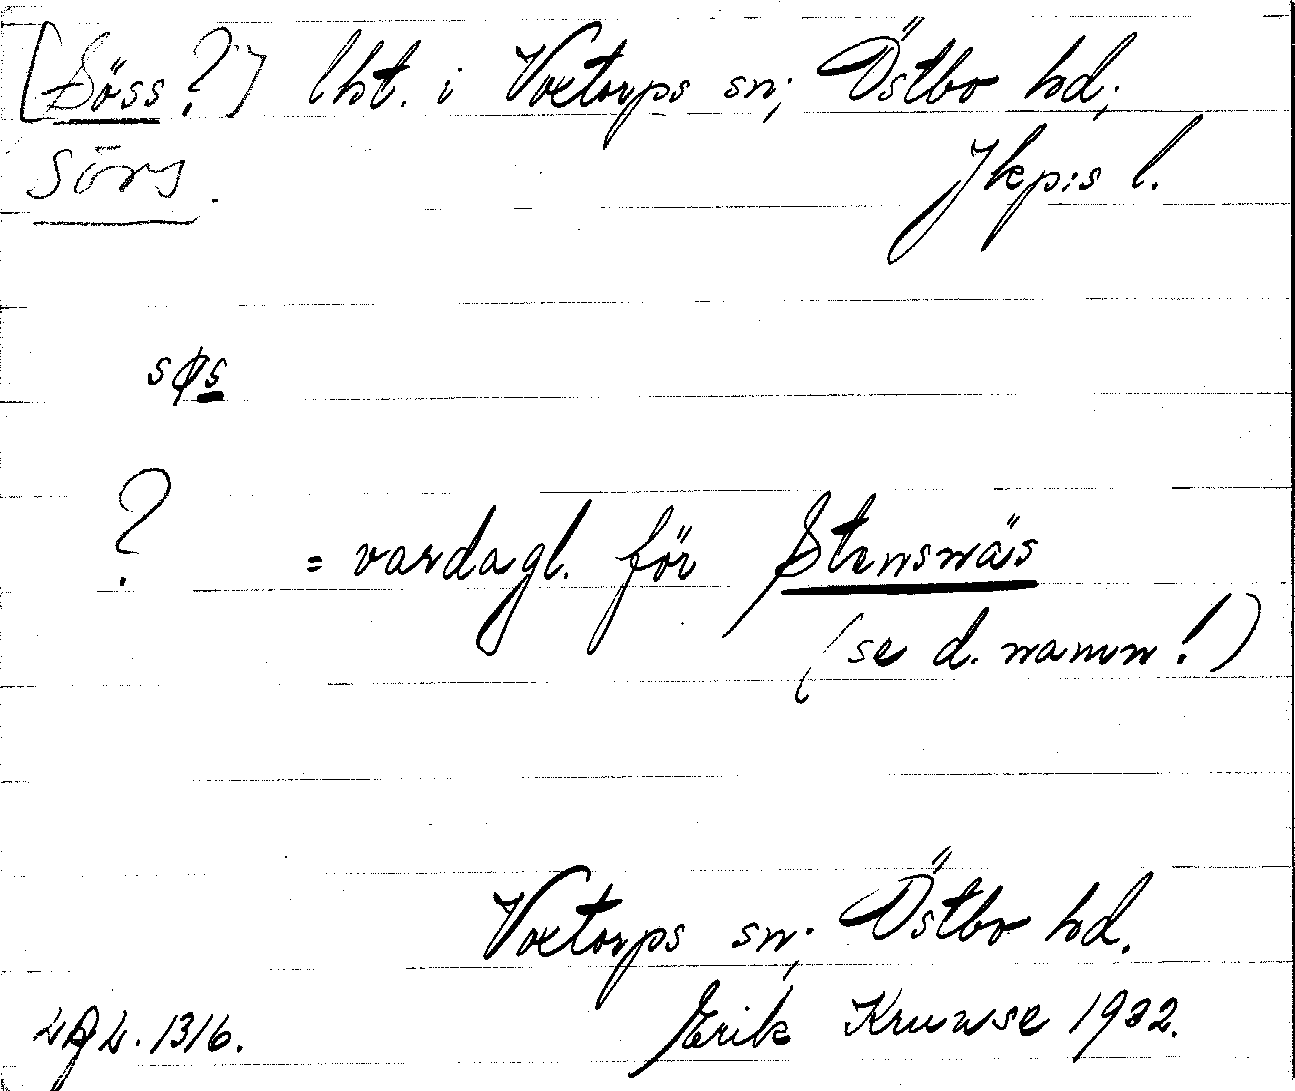 [Söss?] lht. i Voxtorps sn; Östbo hd;
Sörs. Jkp:s l.
søs
? = vardagl. för Stensnäs
(se d. namn!)
Voxtorps sn; Östbo hd.
Erik Krunse 1932.